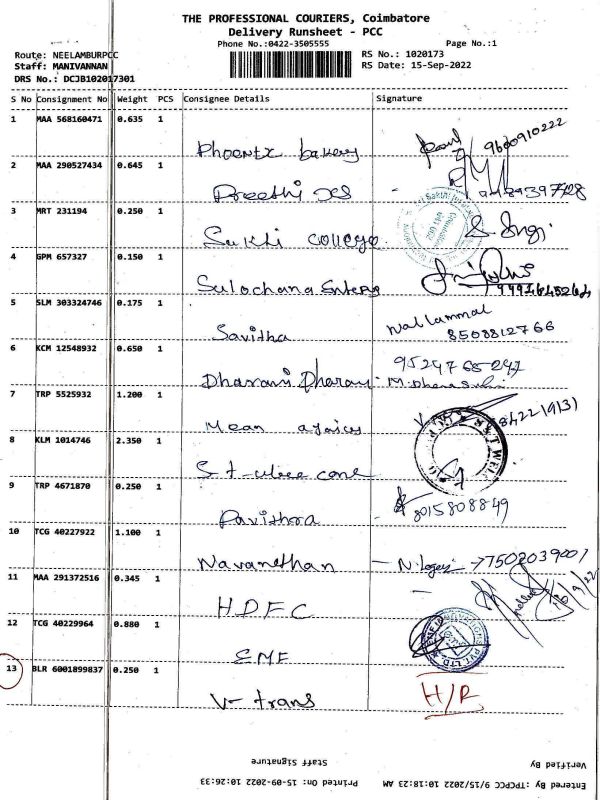 THE PROFESSIONAL COURIERS, Coimbatore
Delivery Runsheet - PCC
Phone No.:0422-3505555 Page No.:1
Route: NEELAMBURPCC RS No.: 1020173
Staff: MANIVANNAN RS Date: 15-Sep-2022
DRS No.: DCJB102017301
S No Consignment No Weight PCS Consignee Details Signature
1 MAA 568160471 0.635 1
Phoenix bakery 9600910222
2 MAA 290527434 0.645 1
Preethi
3 MRT 231194 0.250 1
Sakthi College
4 GPM 657327 0.150 1
Sulochana
5 SLM 303324746 0.175 1
Savitha Nallammal
8508812766
6 KCM 12548932 0.650 1
9524765247
Dharani Dharan -
7 TRP 5525932 1.200 1
8 KLM 1014746 2.350 1
9 TRP 4671870 0.250 1
Pavithra - 8015808849
10 TCG 40227922 1.100 1
Navanethan - N. 7502039001
11 MAA 291372516 0.345 1
HDFC -
12 TCG 40229964 0.880 1
EME
13 BLR 6001899837 0.250 1
V-trans H/R
Staff Signature Verified By
Printed On: 15-09-2022 10:26:33 Entered By :TPCPCC 9/15/2022 10:18:23 AM